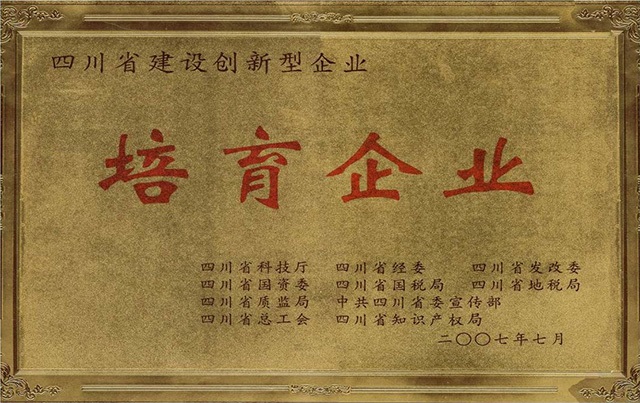 四川省建设创新型企业
培育企业
四川省科技厅 四川省经委 四川省发改委
四川省国资委 四川省国税局 四川省地税局
四川省质监局 中共四川省委宣传部
四川省总工会 四川省知识产权局
二〇〇七年七月